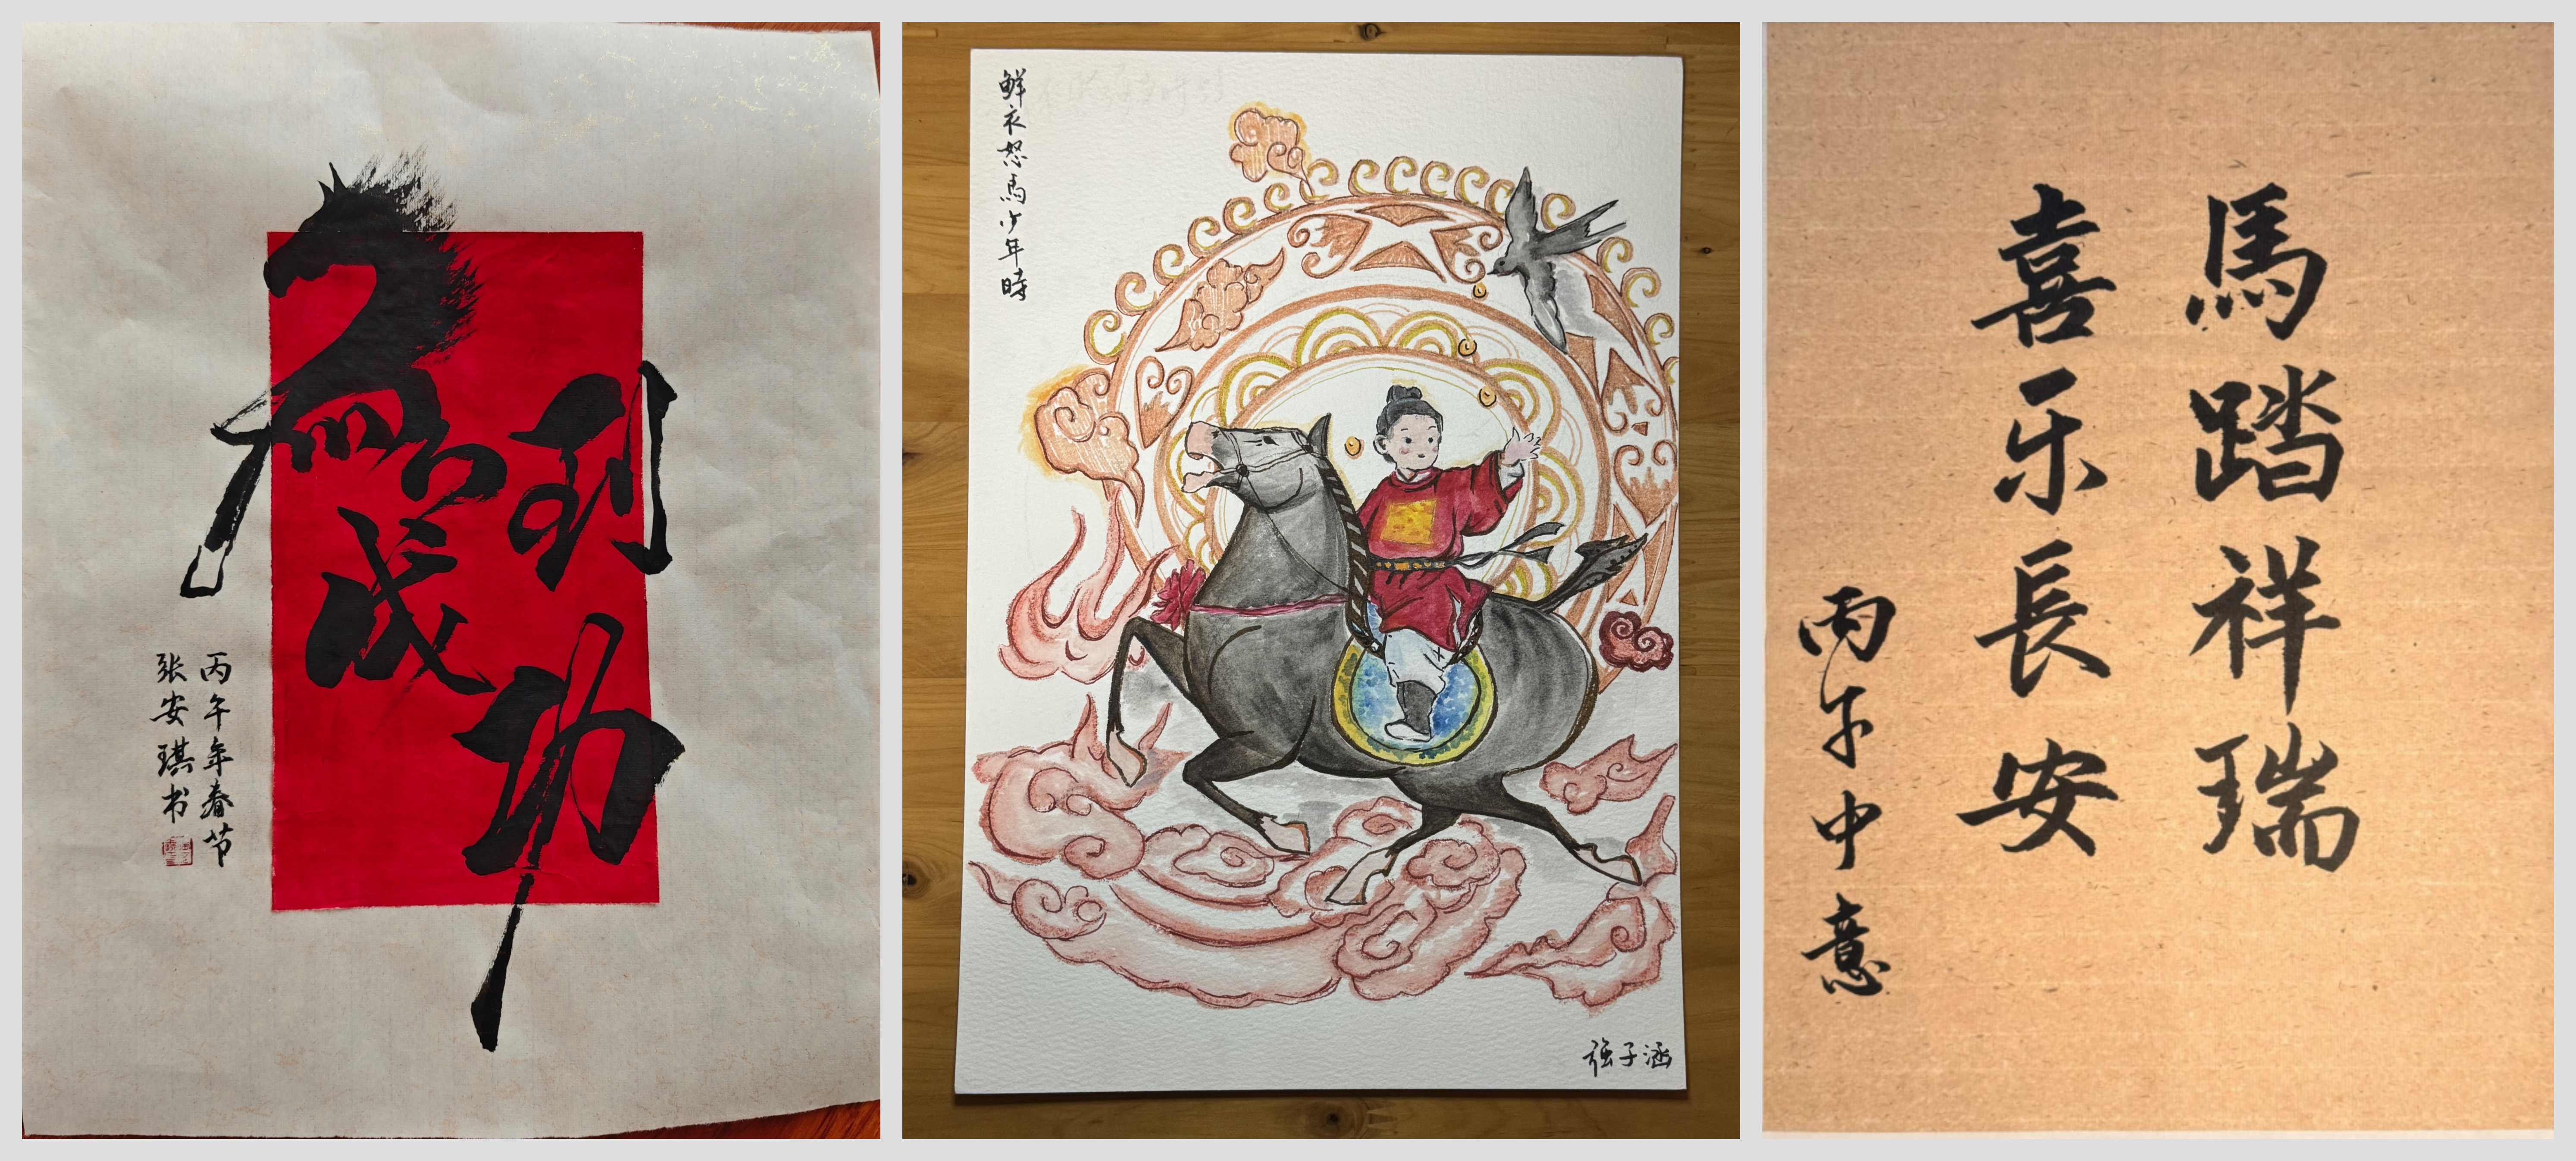 馬到成功
丙午年春节
张安琪书
鮮衣怒馬少年時
子涵
馬踏祥瑞
喜乐長安
丙午中意